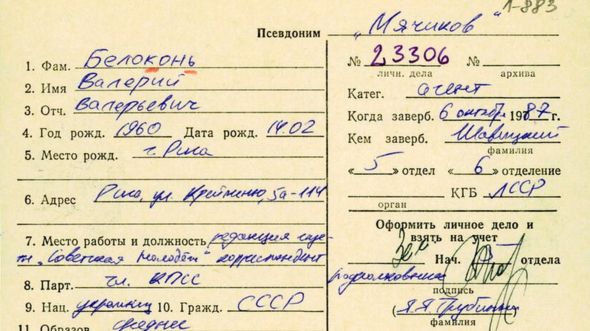 1-883
Псевдоним „Мячиков"
1. Фам. Белоконь
2. Имя Валерий
3. Отч. Валерьевич
4. Год рожд. 1960 Дата рожд. 14.02
5. Место рожд. г. Рига
6. Адрес Рига, ул. 5а-114
7. Место работы и должность редакция
„Советская молодежь" корреспондент
8. Парт. чл. КПСС
9. Нац. украинец 10. Гражд. СССР
11. Образов. среднее
№ 23306
личн. дела архива
Катег. агент
Когда заверб. 6 октябр 1987 г.
Кем заверб. Шавецкий
фамилия
„5" отдел „6" отделение
КГБ ЛССР
орган
Оформить личное дело и
взять на учет
Нач. 5 отдела
подполковник
подпись
фамилия